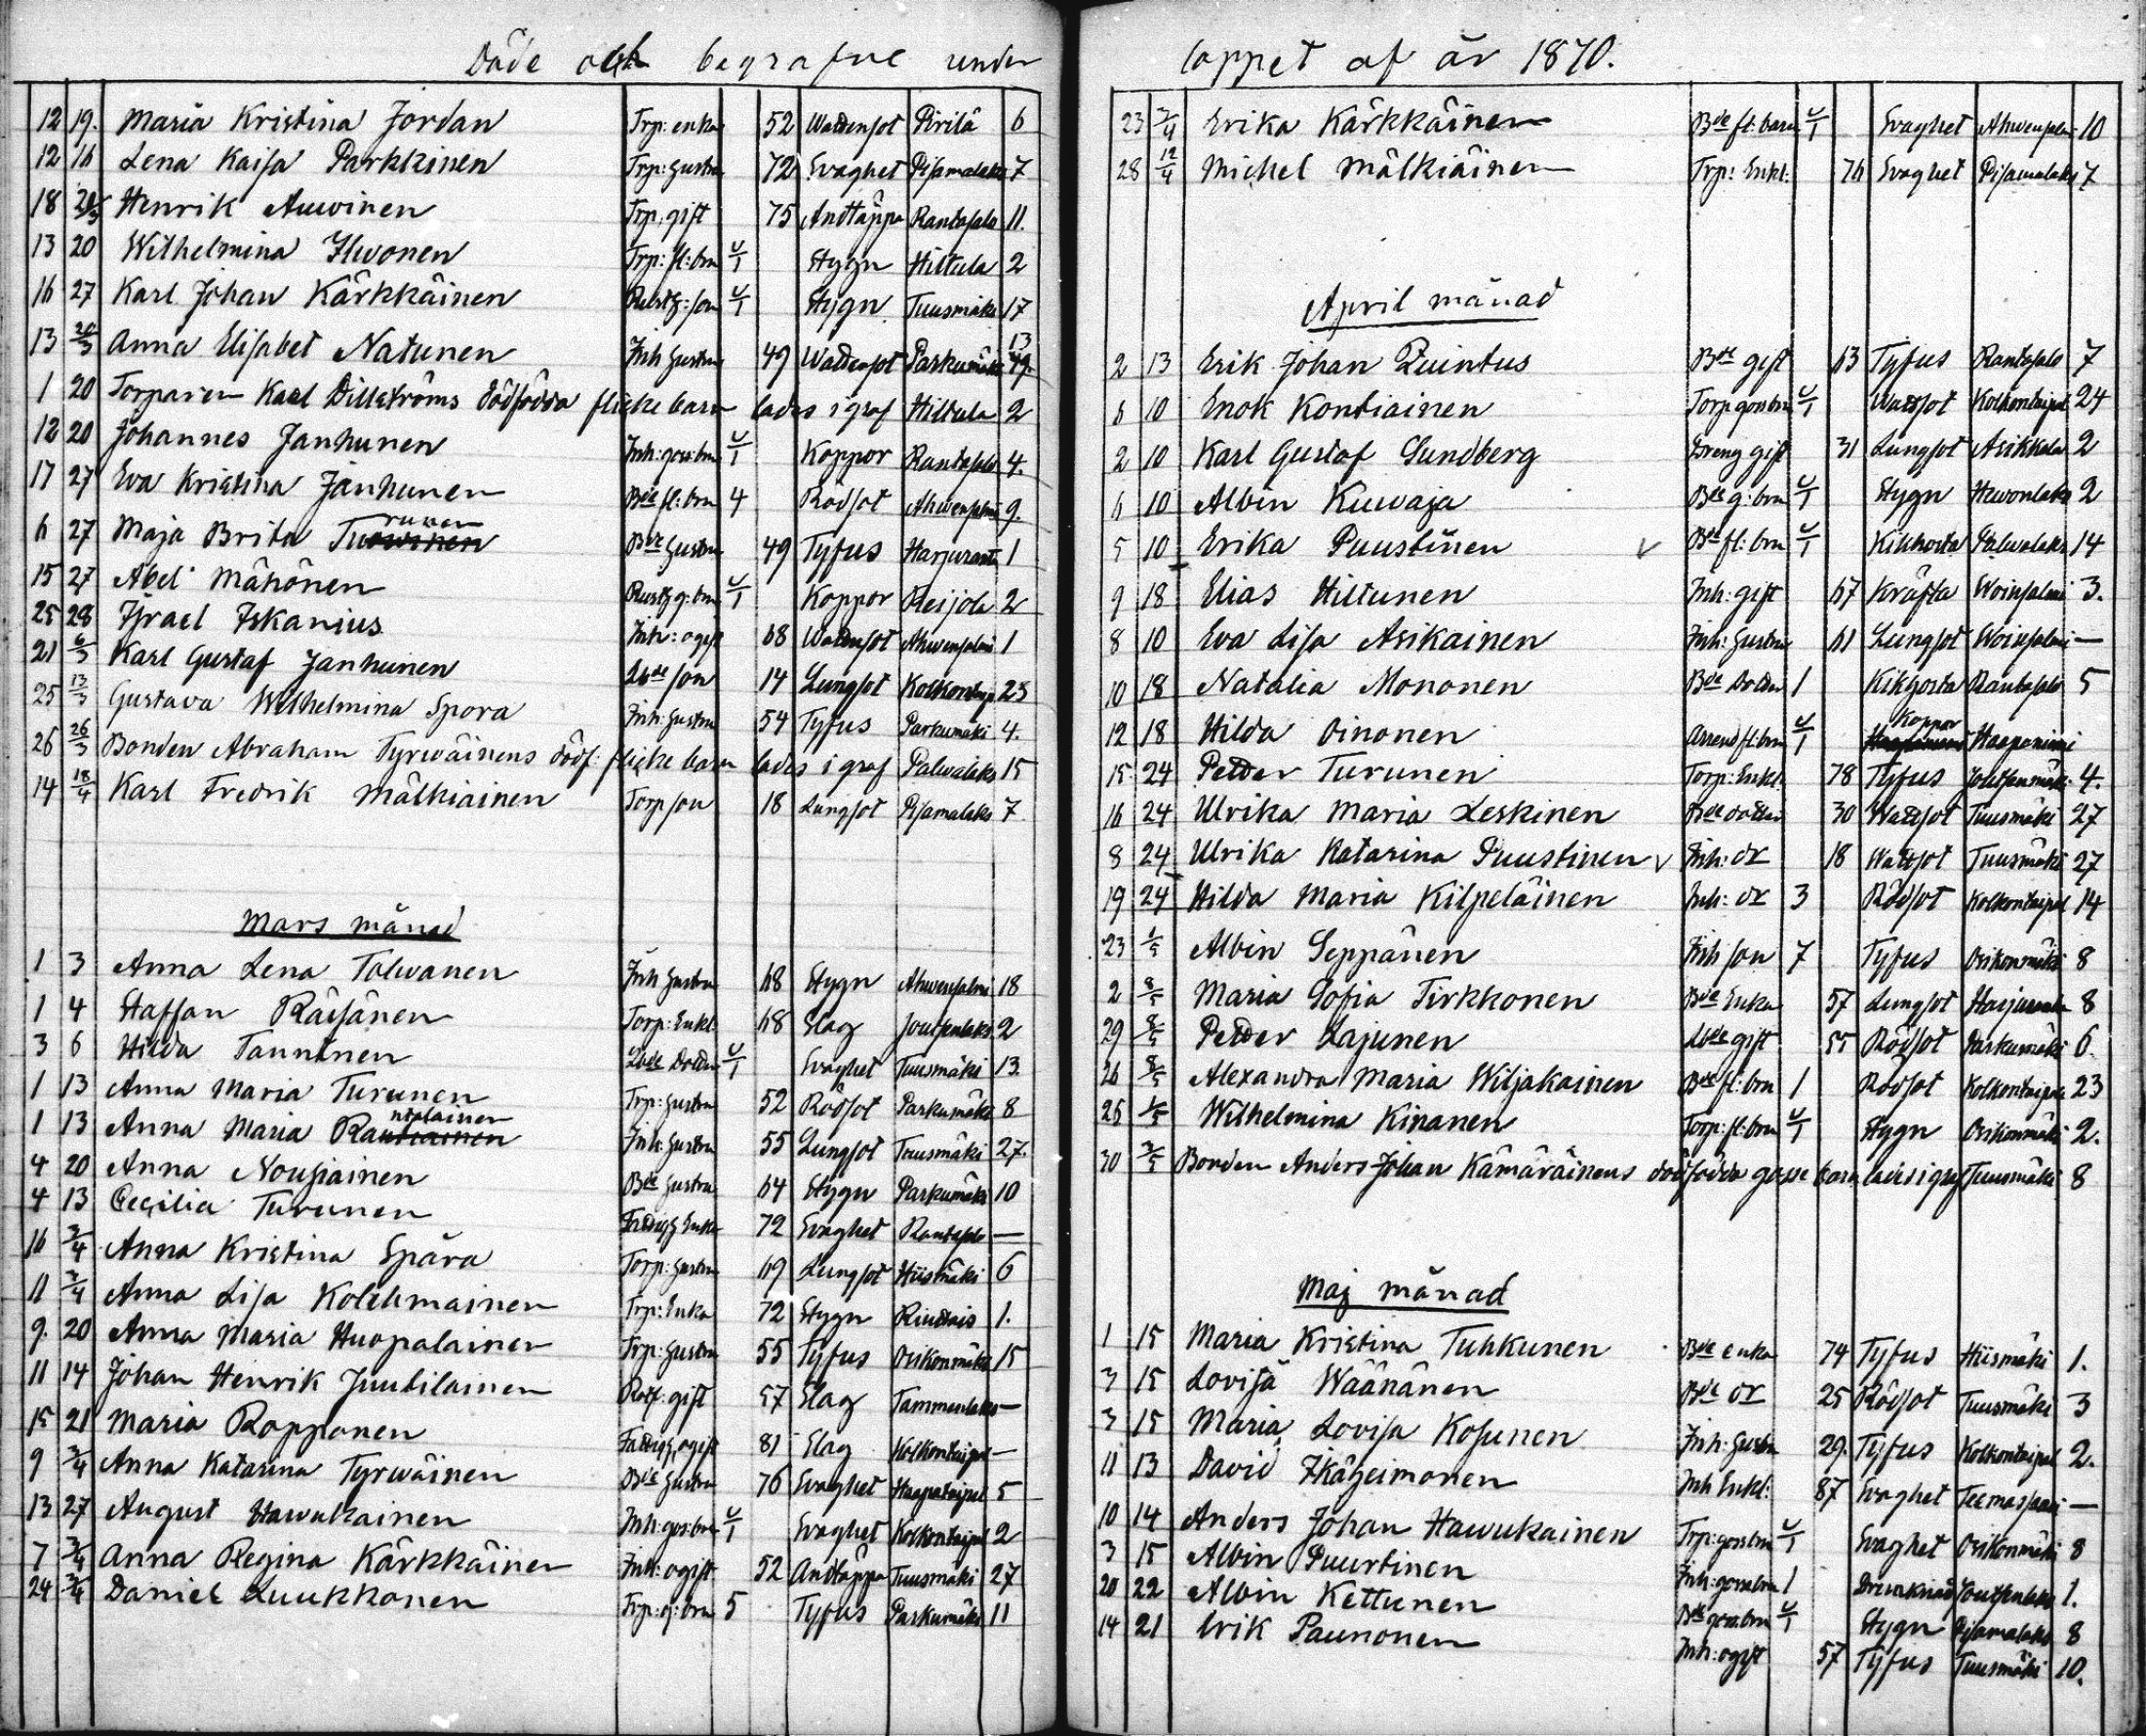 Döde och begrafne under
12 19. Maria Kristina Jordan Trp: enka 52 Wattensot Pirilä 6
12 16 Lena Kaisa Parkkinen Trp: hustru 72 Svaghet Pisamalaks 7
18 Henrik Auvinen Trp. gift 75 Andtäppa Rantasalo 11.
13 20 Wilhelmina Ihvonen Trp: fl: brn u/1 Stygn Hiltula 2
16 27 Karl Johan Kärkkäinen Rusth: son u/1 Stygn Tuusmäki 17
13 20/3 Anna Elisabet Natunen Inh hustru 49 Wattensot Parkumäki 13
1 20 Torparen Karl Dillströms dödfödda flicke barn lades i graf Hiltula 2
12 20 Johannes Janhunen Inh: goss: brn u/1 Koppor Rantasalo 4.
17 27 Eva Kristina Janhunen Bde fl: brn 4 Rödsot Ahvensalmi 9.
6 27 Maja Brita Turunen Bde hustru 49 Tyfus Harjuranta 1
15 27 Abel Mähönen Rusth g: brn u/1 Koppor Reijola 2
25 28 Israel Iskanius Inh: ogift 68 Wattensot Ahvensalmi 1
21 6/3 Karl Gustaf Janhunen Lbde son 14 Lungsot Kolkontaip 23
25 13/3 Gustava Wilhelmina Spora Inh: hustru 54 Tyfus Parkumäki 4.
26 26/3 Bonden Abraham Tyrwäinens dödf: flicke barn lades i graf Palvalaks 15
14 18/4 Karl Fredrik Mälkiainen Torp son 18 Lungsot Pisamalaks 7
Mars månad
1 3 Anna Lena Tolwanen Inh hustru 68 Stygn Ahvensalmi 18
1 4 Staffan Räisänen Torp: Enkl. 68 Slag Joutsenlaks 2
3 6 Hilda Tanninen Lbde Dotter u/1 Svaghet Tuusmäki 13.
1 13 Anna Maria Turunen Trp: hustru 52 Rödsot Parkumäki 8
1 13 Anna Maria Rantalainen Inh: hustru 55 Lungsot Tuusmäki 27.
4 20 Anna Nousiainen Bde hustru 64 Stygn Parkumäki 10
4 13 Cecilia Turunen Fattigh Enka 72 Svaghet Rantasalo —
16 3/4 Anna Kristina Spåra Torp: hustru 69 Lungsot Hiismäki 6
11 3/4 Anna Lisa Kolehmainen Trp: Enka 72 Stygn 1.
9. 20 Anna Maria Huopalainen Trp: hustru 55 Tyfus Orikonmäki 15
11 14 Johan Henrik Juutilainen Rotf: gift 57 Slag Tammenlaks —
15 21 Maria Ropponen Fattigh, ogift 81 Slag Kolkontaipal —
9 3/4 Anna Katarina Tyrwäinen Bde hustru 76 Svaghet Haapataipal 5
13 27 August Hawukainen Inh: gos: brn u/1 Svaghet Kolkontaipal 2
7 3/4 Anna Regina Kärkkäinen Inh: ogift 52 Andtäppa Tuusmäki 27
24 3/4 Daniel Luukkonen Trp: g: brn 5 Tyfus Parkumäki 11
loppet af år 1870.
23 3/4 Erika Kärkkäinen Bde fl: barn u/1 Svaghet Ahvensalmi 10
28 12/4 Michel Mälkiäinen Trp: Enkl: 76 Svaghet Pisamalaks 7
April månad
2 13 Erik Johan Quintus Bde gift 63 Tyfus Rantasalo 7
6 10 Enok Kontiainen Torp goss brn u/1 Wattsot Kolkontaipal 24
2 10 Karl Gustaf Sundberg Dreng gift 31 Lungsot Asikkala 2
6 10 Albin Kuwaja Bde g: brn u/1 Stygn Hevonlaks 2
5 10 Erika Puustinen v Bde fl: brn u/1 Kikhosta Palvalaks 14
9 18 Elias Hiltunen Inh: gift 67 Kräfta Woinsalmi 3.
8 10 Eva Lisa Asikainen Inh: hustru 61 Lungsot Woinsalmi —
10 18 Natalia Mononen Bde Dotter 1 Kikhosta Rantasalo 5
12 18 Hilda Oinonen Arrend fl: brn u/1 Koppor Haapaniemi
15 24 Petter Turunen Torp: Enkl. 78 Tyfus 4.
16 24 Ulrika Maria Leskinen Bde dotter 30 Wattsot Tuusmäki 27
8 24 Ulrika Katarina Puustinen v Inh: dr 18 Wattsot Tuusmäki 27
19 24 Hilda Maria Kilpeläinen Inh: dr 3 Rödsot Kolkontaipal 14
23 1/5 Albin Seppänen Inh son 7 Tyfus Orikonmäki 8
2 8/5 Maria Sofia Tirkkonen Bde Enka 57 Lungsot Harjuranta 8
29 8/5 Petter Lajunen Lbde gift 55 Rödsot Parkumäki 6.
26 8/5 Alexandra Maria Wiljakainen Bde fl: brn 1 Rödsot Kolkontaipal 23
25 1/5 Wilhelmina Kinanen Torp: fl: brn u/1 Stygn Orikonmäki 2.
30 3/5 Bonden Anders Johan Kämäräinens dödfödda gosse barn lades i graf Tuusmäki 8
Maj månad
1 15 Maria Kristina Tuhkunen Bde enka 74 Tyfus Hiismäki 1.
3 15 Lovisa Wäänänen Bde dr 25 Rödsot Tuusmäki 3
3 15 Maria Lovisa Kosunen Inh: hustru 29. Tyfus Kolkontaipal 2.
11 13 David Ikäheimonen Inh Enkl: 87 Svaghet Teemassaari —
10 14 Anders Johan Hawukainen Trp: goss brn u/1 Svaghet Orikonmäki 8
3 15 Albin Puurtinen Inh: goss brn 1 Drunknad Joutsenlaks 1.
20 22 Albin Kettunen Bde goss brn u/1 Stygn Pisamalaks 8
14 21 Erik Paunonen Inh: ogift 57 Tyfus Tuusmäki 10.